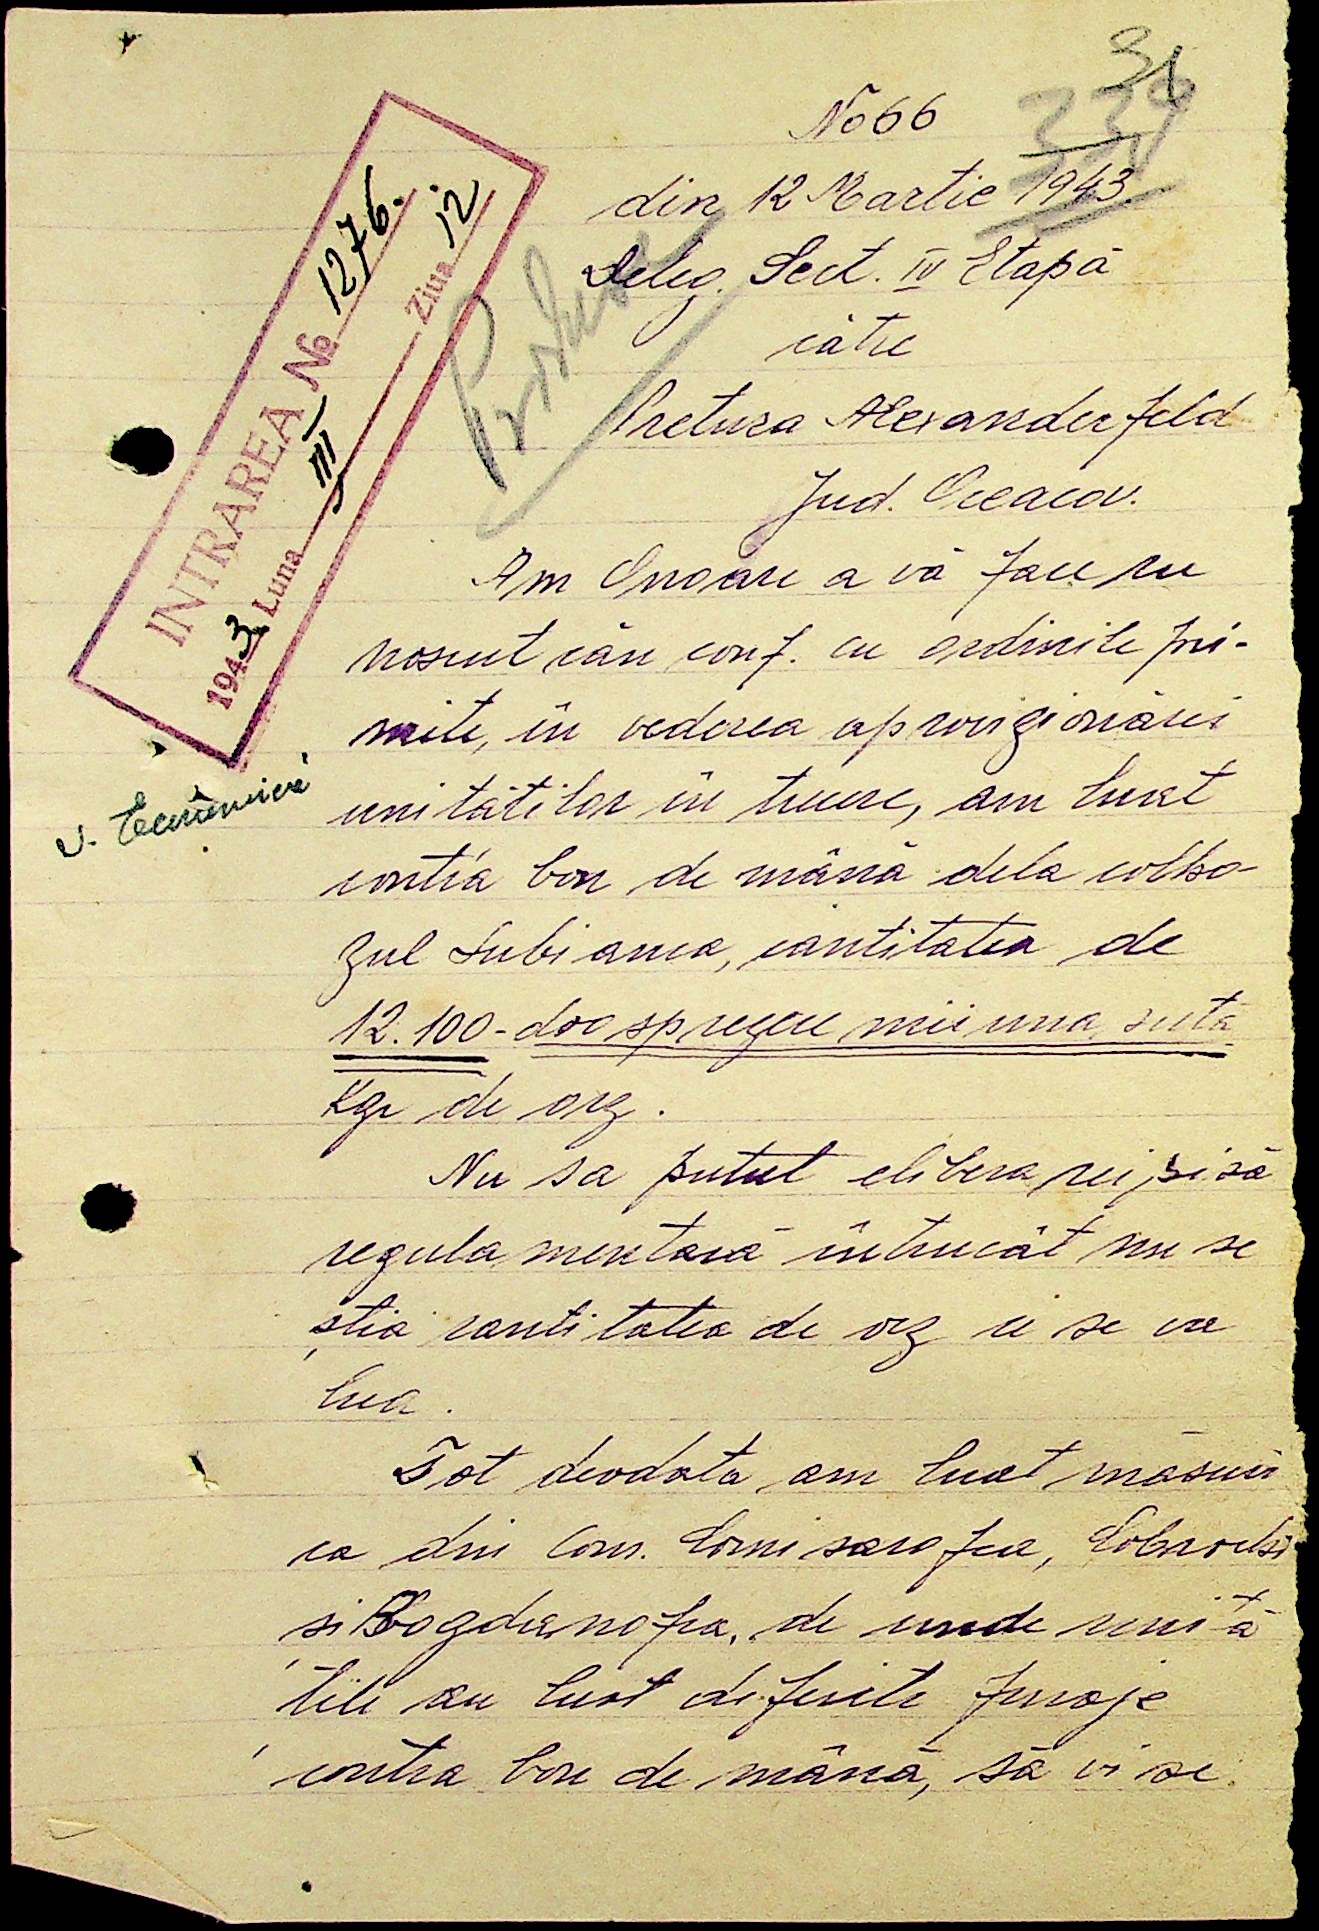 31
339
No 66
din 12 Martie 1943.
Deleg. Sect. IV Etapă
către
Pretura Alexanderfeld
Jud. Oceacov.
INTRAREA No 1276.
1943 Luna III Ziua 12
s. Economică
Am Onoare a vă face cu
noscut că în conf. cu ordinile pri-
mite, în vederea aprovizionărei
unităților în trecere, am luat
contra bon de mână dela colho-
zul Lubianca, cantitatea de
12.100 - doospre zece mii una sută
Kgr de orz.
Nu sa putut elibera rechiziă
regulamentară întrucât nu se
știa cantitatea de orz ce se va
lua.
Tot deodata am luat măsuri
ca din Com. Comisarofca,
și Bogdanofca, de unde unită
țile au luat diferite furaje
contra bon de mână, să vi se